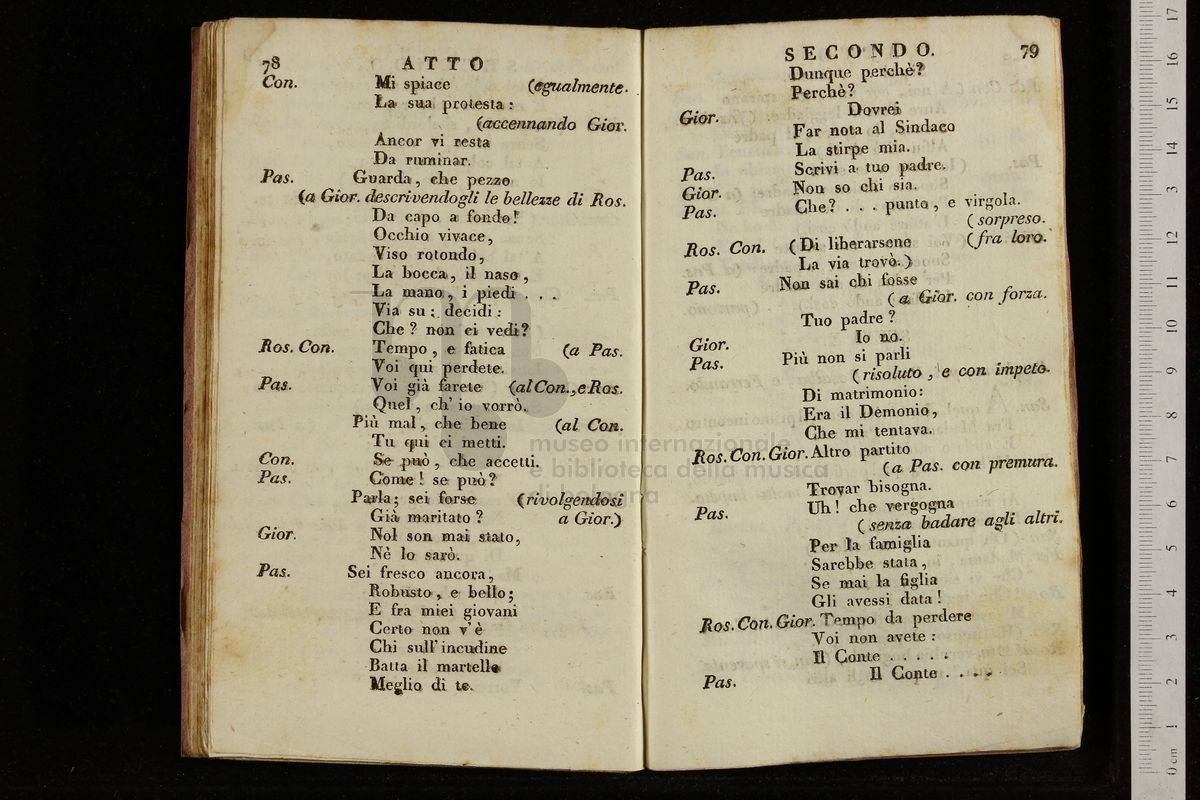 78 ATTO
Con. Mi spiace (egualmente.
La sua protesta:
(accennando Gior.
Ancor vi resta
Da ruminar.
Pas. Guarda, che pezzo
(a Gior. descrivendogli le bellezze di Ros.
Da capo a fondo!
Occhio vivace,
Viso rotondo,
La bocca, il naso,
La mano, i piedi . . .
Via su; decidi:
Che? non ci vedi?
Ros. Con. Tempo, e fatica (a Pas.
Voi qui perdete.
Pas. Voi già farete (al Con., e Ros.
Quel, ch' io vorrò.
Più mal, che bene (al Con.
Tu qui ci metti.
Con. Se può, che accetti.
Pas. Come! se può?
Parla; sei forse (rivolgendosi
Già maritato? a Gior.)
Gior. Nol son mai stato,
Nè lo sarò.
Pas. Sei fresco ancora,
Robusto, e bello;
E fra miei giovani
Certo non v'è
Chi sull'incudine
Batta il martello
Meglio di te.
SECONDO. 79
Dunque perchè?
Perchè?
Gior. Dovrei
Far nota al Sindaco
La stirpe mia.
Pas. Scrivi a tuo padre.
Gior. Non so chi sia.
Pas. Che? . . . punto, e virgola.
(sorpreso.
Ros. Con. (Di liberarsene (fra loro.
La via trovò.)
Pas. Non sai chi fosse
(a Gior. con forza.
Tuo padre?
Gior. Io no.
Pas. Più non si parli
(risoluto, e con impeto.
Di matrimonio:
Era il Demonio,
Che mi tentava.
Ros. Con. Gior. Altro partito
(a Pas. con premura.
Trovar bisogna.
Pas. Uh! che vergogna
(senza badare agli altri.
Per la famiglia
Sarebbe stata,
Se mai la figlia
Gli avessi data!
Ros. Con. Gior. Tempo da perdere
Voi non avete:
Il Conte . . . . .
Pas. Il Conte . . . .
museo internazionale
e biblioteca della musica
di bologna
0 cm 1 2 3 4 5 6 7 8 9 10 11 12 13 14 15 16 17